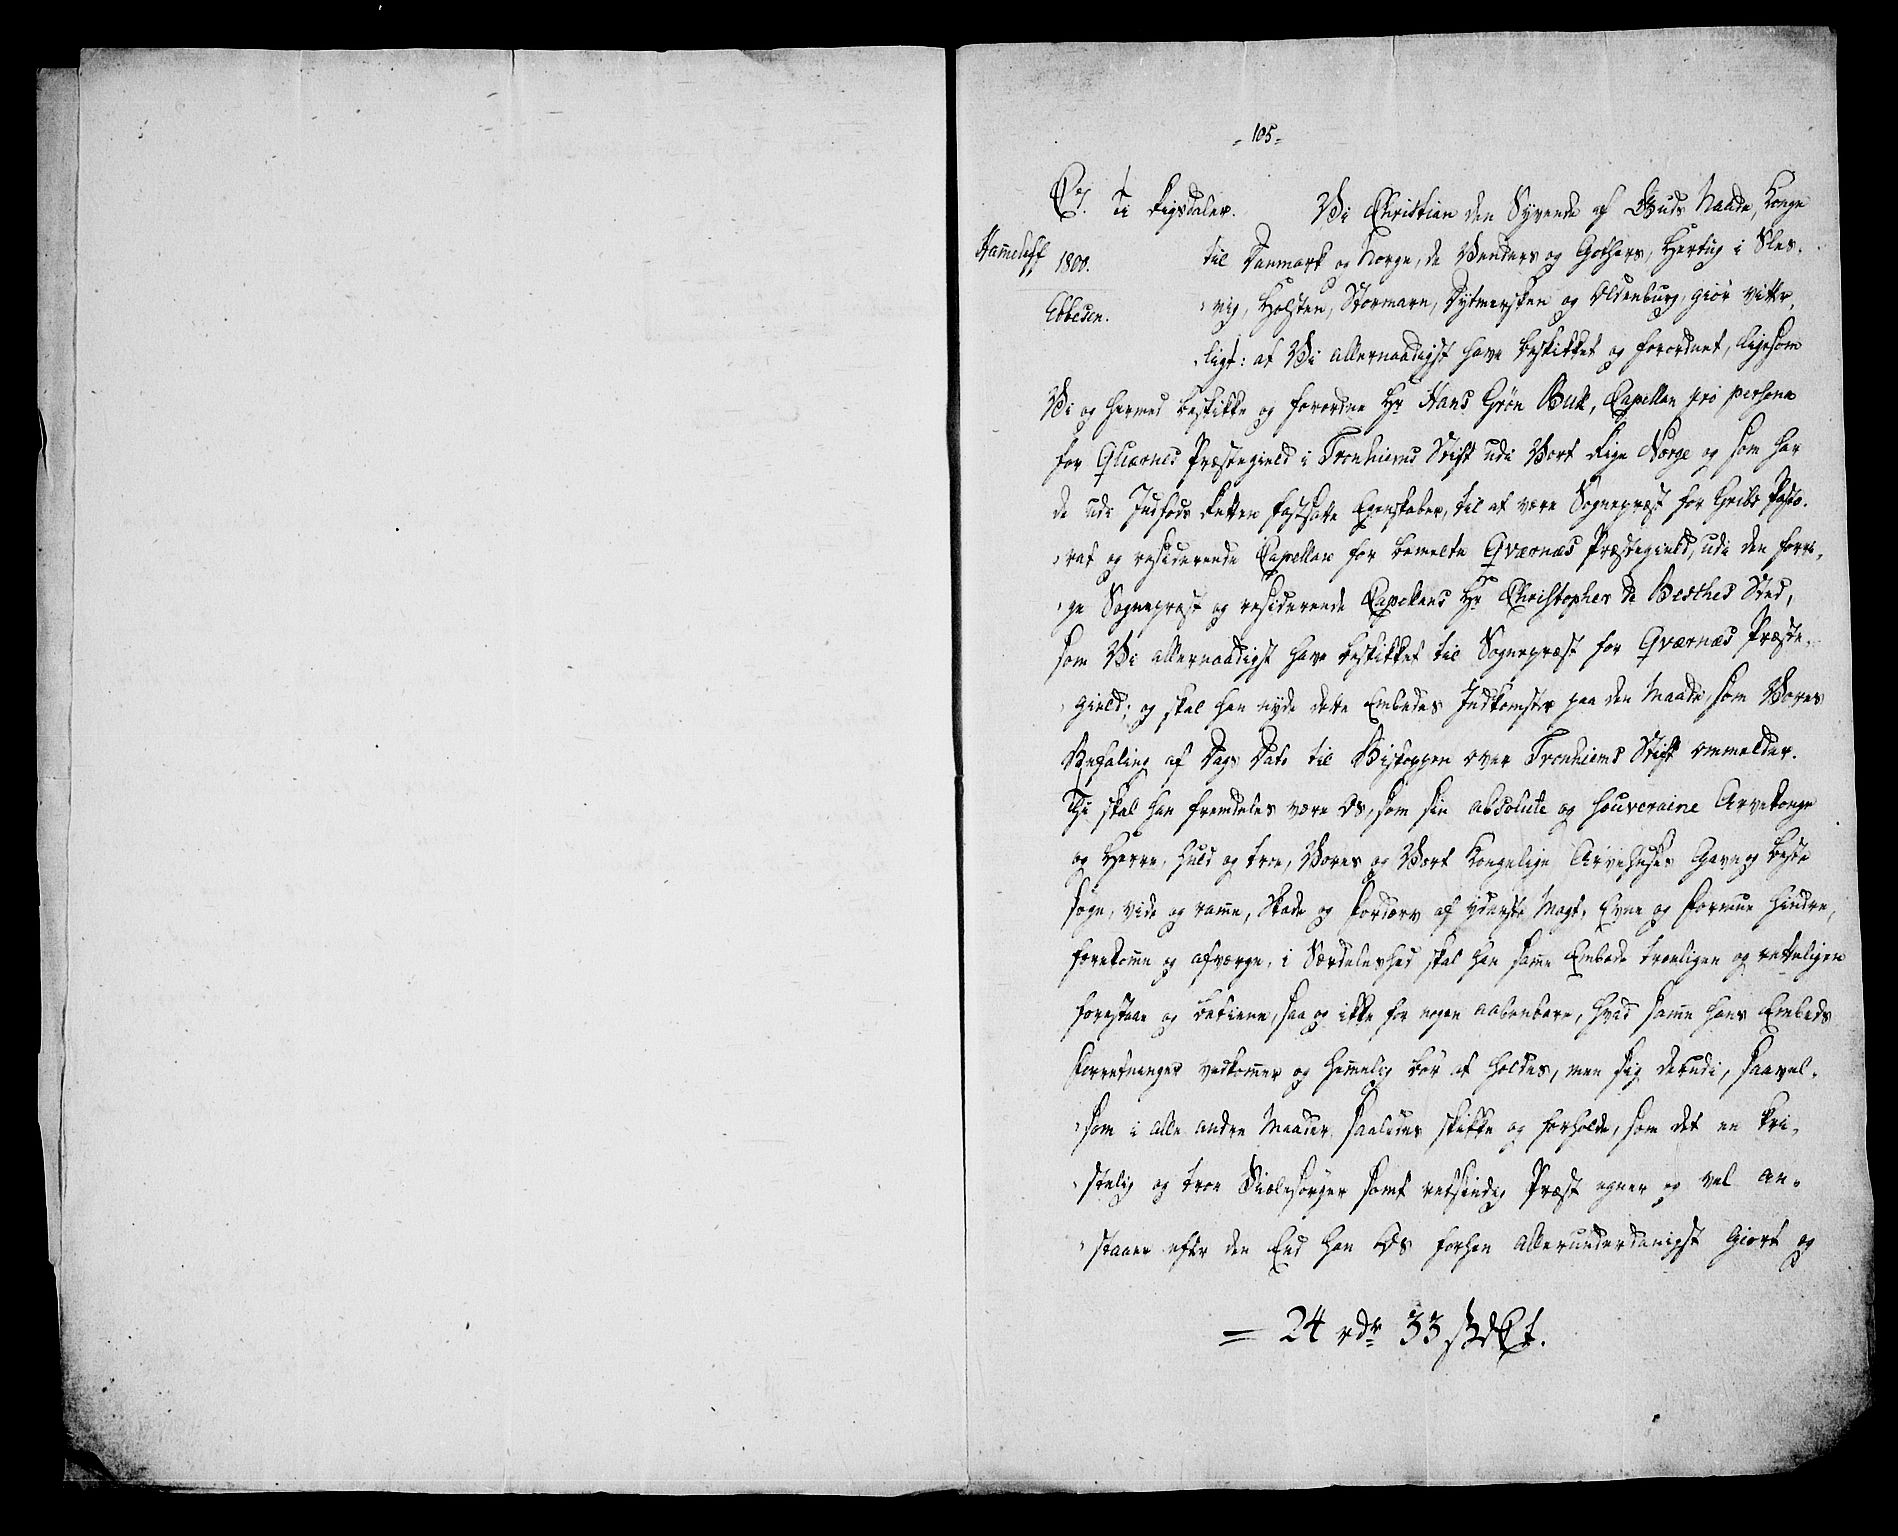 - 105 -
Ti Rigsdaler. Vi Christian den Syvende af Guds Naade, Konge
Hameleff 1800. til Danmark og Norge, de Venders og Gothers, Hertug i Sles-
Ebbesen. -vig, Holsten, Stormarn, Dytmersken og Oldenburg, giør vitter-
-ligt: at Vi allernaadigst have beskikket og forordnet, ligesom
Vi og hermed beskikke og forordne Hr Hans Grøn Buk, Capellan pro persona
for Qværnes Præstegield i Tronhiems Stift udi Vort Rige Norge og som har
de udi Indføds Retten fastsatte Egenskaber, til at være Sognepræst for Gribs Pasto-
-rat og residerende Capellan for bemelte Qværnæs Præstegield, udi den forri-
-ge Sognepræst og residerende Capellans Hr Christopher de Besches Sted,
som Vi allernaadigst have beskikket til Sognepræst for Qværnæs Præste-
-gield; og skal han nyde dette Embedes Indkomster paa den Maade som Vores
Befaling af Dags Dato til Biskoppen over Tronhiems Stift ommelder.
Thi skal han fremdeles være Os, som sin absolute og souveraine Arvekonge
og Herre, huld og troe, Vores og Vort Kongelige Arvehuses Gavn og beste
søge, vide og rame, Skade og Fordærv af yderste Magt, Evne og Formue hindre,
forekome og afværge, i Særdeleshed skal han same Embede troeligen og retteligen
forestaae og betiene, saa og ikke for nogen aabenbare, hvad same hans Embeds
Forretninger vedkomer og hemelig bør at holdes, men sig derudi, saavel-
-som i alle andre Maader saaledes skikke og forholde, som det en kri-
-stelig og troe Siælesørger samt retsindig Præst egner og vel an-
-staaer efter den Eed han Os forhen allerunderdanigst giort og
= 24 rdr 33 s